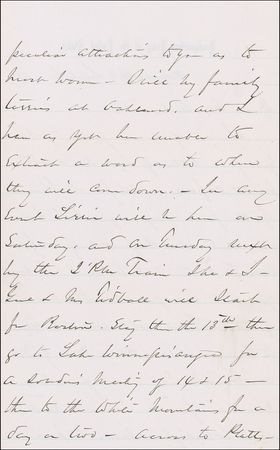 peculiar attractions to you as to
most women - Still my family
at Oakland, and I
have as yet been unable to
extract a word as to when
they will come down. - In any
event Lizzie will be here on
Saturday, and on Tuesday next
by the 2 P.M. Train She & I -
& Mrs Tidball will Start
for Boston. Stay there the 13th - then
go to Lake Winnipiseogee for
a Soldiers Meeting of 14 & 15 -
then to the White Mountains for a
day or two - across to Platts-